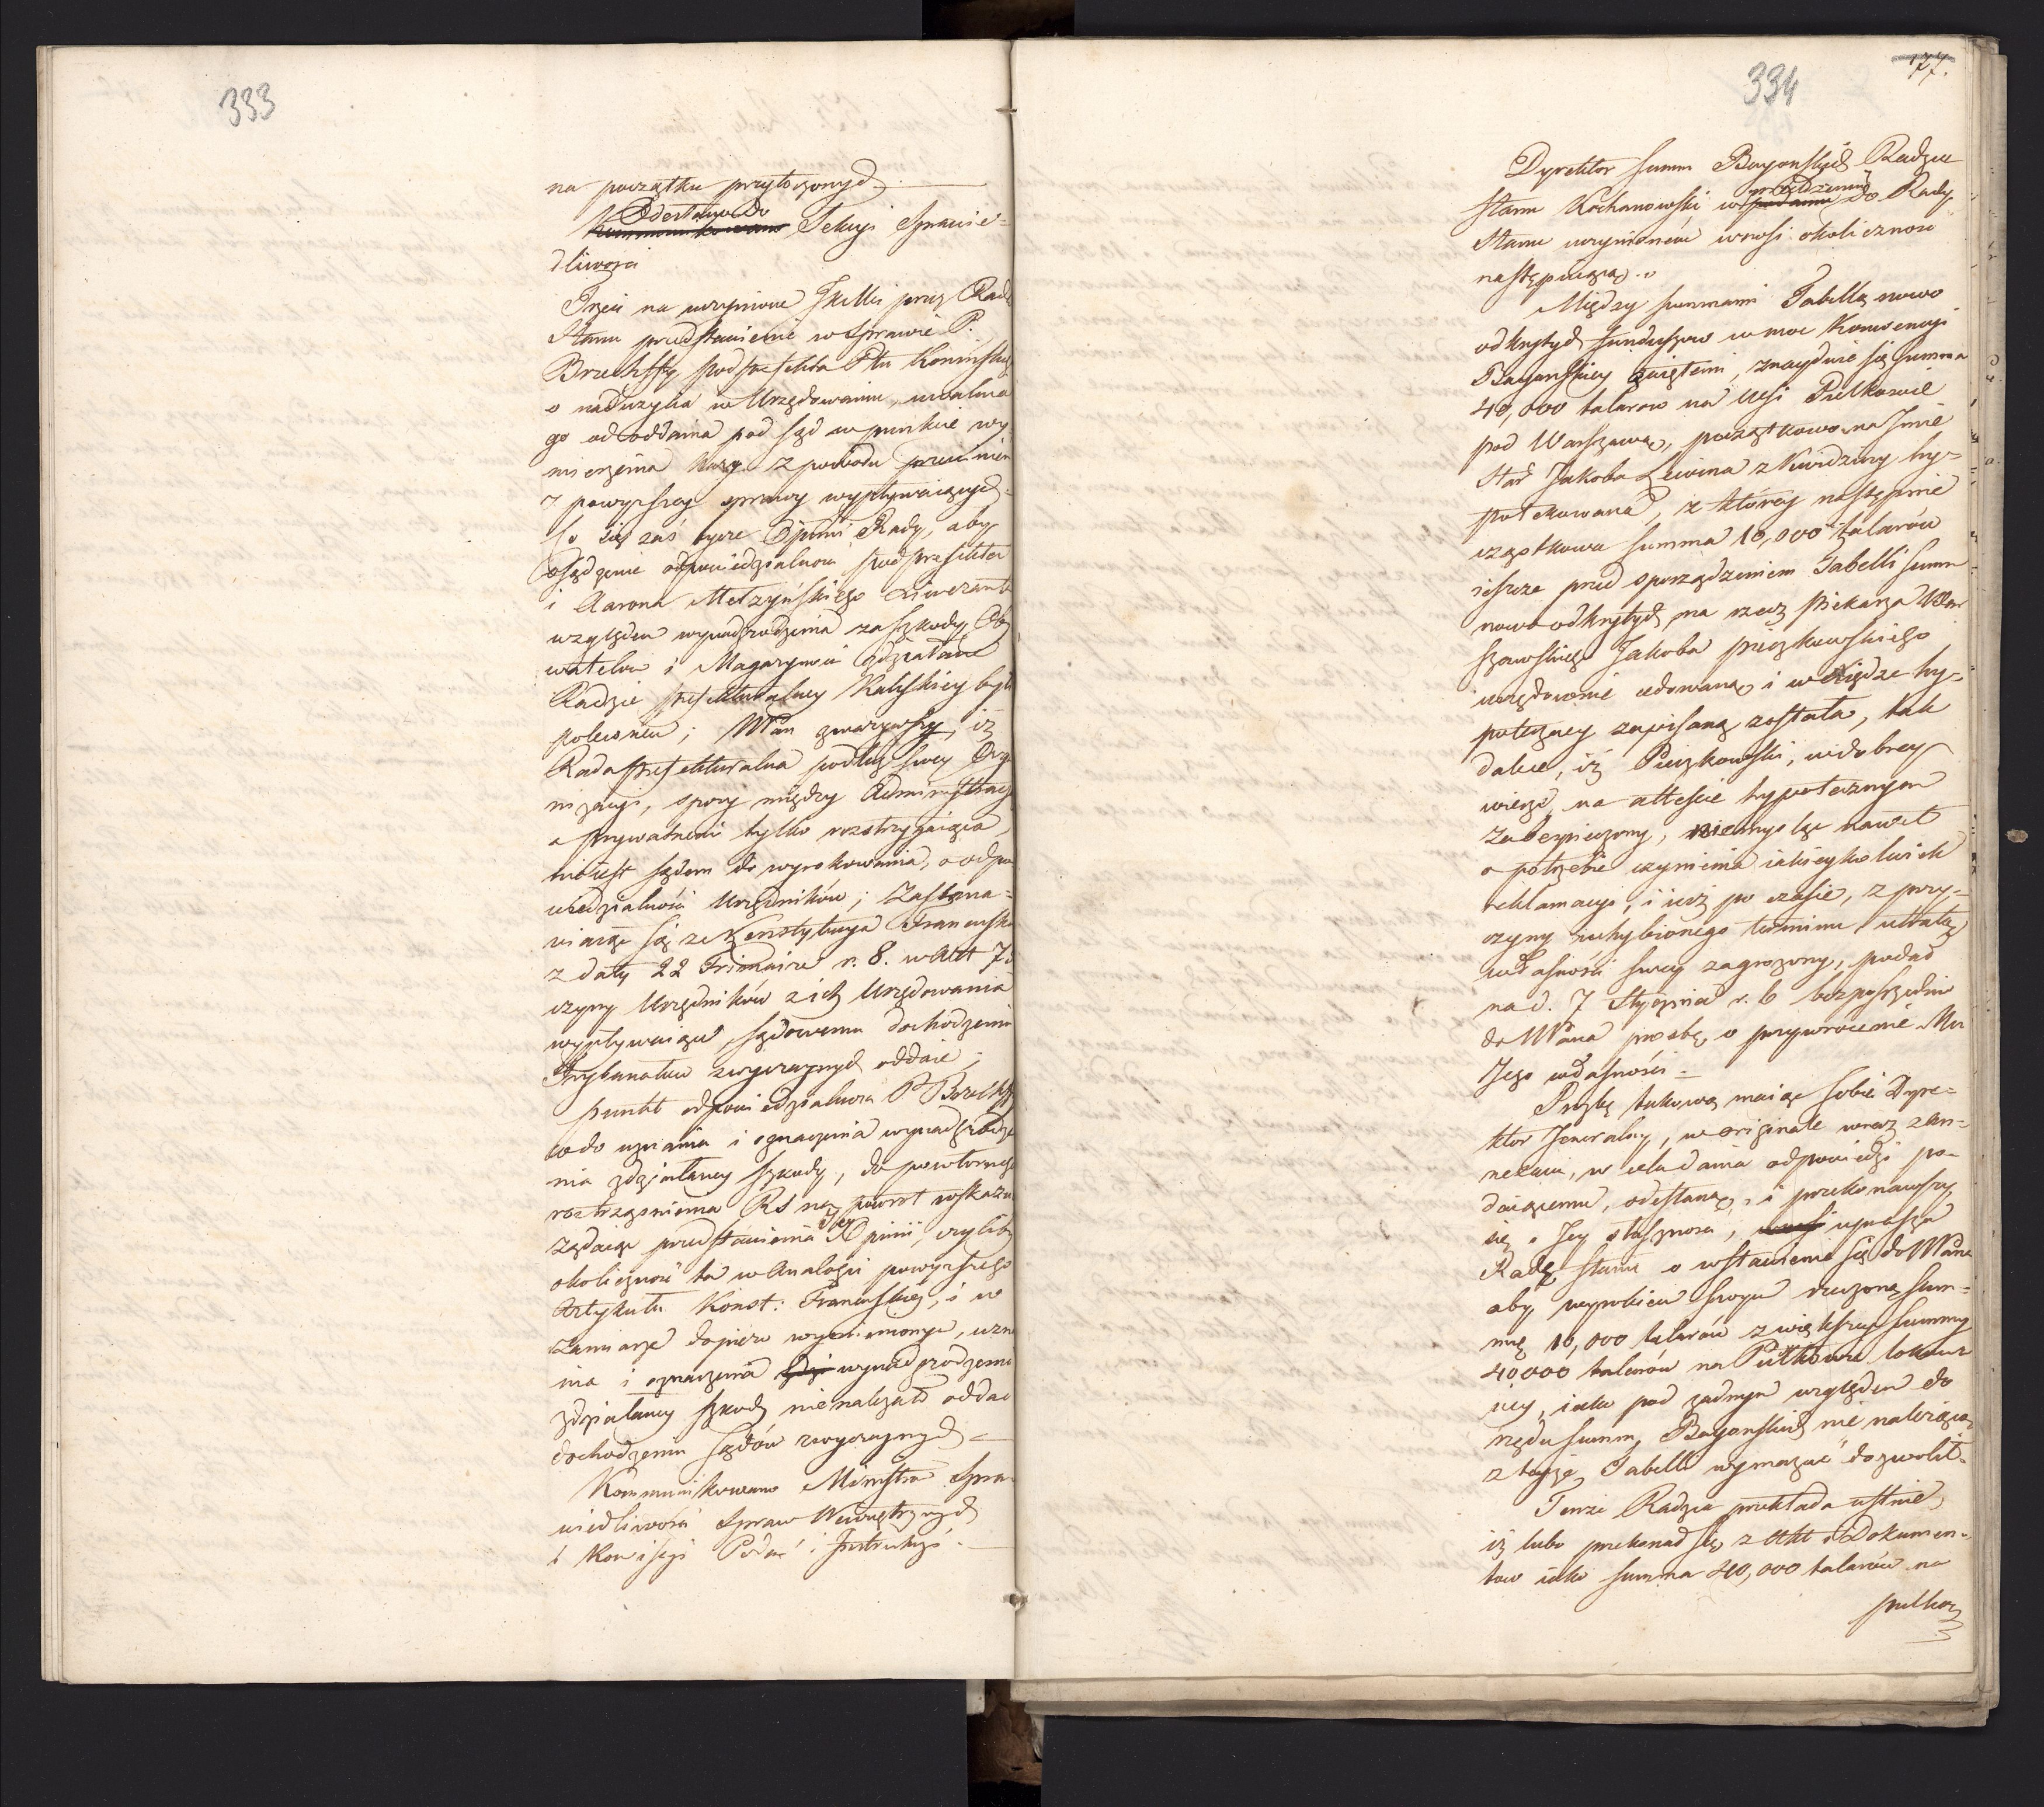 333
na początku przytoczonych.
Odesłano do
Kommunikowano Sekcyi Sprawie-
dliwości
Trzeci na uczynione skutki przez Radę
Stanu przedstawienie w Sprawie P.
Podprefekta Ptu Konińskiego
o nadużycia w Urzędowaniu, uwalnia
go od oddania pod sąd w punkcie wy-
mierzenia kary z powodu
z powyższey sprawy wypływaiących.
Co się zaś tycze Opinii Rady, aby
osądzenie odpowiedzialności podprefekta
i Aarona Mełzyńskiego Liweranta
względem wynadgrodzenia za szkody Oby
watelom i Magazynowi zdziałane
Radzie prefekturalney Kaliskiey było
polecone; NPan zważywszy, iż
Rada prefekturalna podług swey Orga
nizacyi, spory między Administracyą
a prywatnemi tylko rozstrzygaiąca,
nie iest sądem do wyrokowania, o odpo
wiedzialności Urzędników; Zastana-
wiaiąc się ze Konstytucya Francuska
z daty 22 Frimaire r. 8. w Art 75
czyny Urzędników z ich Urzędowania
wypływaiące, sądowemu dochodzeniu
Trybunałów zwyczaynych oddaie;
punkt odpowiedzialności P
co do uznania i oznaczenia wynadgrodze
nia zdziałaney szkody, do powtórnego
roztrząśnienia RS na powrot wskazu
żądaiąc przedstawienia Jey Opinii, czyliby
okoliczność ta w Analogii powyższego
Artykułu Konst: Francuskiey, i w
zamiarze dopiero wymienionym, uzna
nia i oznaczenia wynadgrodzenia
zdziałaney szkody nie należało oddać
dochodzeniu sądów zwyczaynych. —
Kommunikowano Ministra Spra
wiedliwości Spraw Wewnętrznych
i Komisyi Podań i Instrukcyi. —
334
177.
Dyrektor summ Bayońskich Radzca
Stanu Kochanowski w podaniu do Rady
Stanu uczynionem wnosi okoliczność
następuiącą. "
Między summami Tabellą nowo
odkrytych funduszow w moc Konwencyi
Bayońskiey zaiętemi, znayduie się summa
40,000 talarow na Wsi Pulkowie
pod Warszawą, początkowo na Imie
Star Jakoba Lewina z Kwidzyny hy-
potekowana, z ktorey następnie
cząstkowa summa 10,000 talarów
ieszcze przed sporządzeniem Tabelli summ
nowo odkrytych na rzecz piekarza War
szawskiego Jakoba pieczkowskiego
urzędownie cedowaną i w Xiędze hy-
poteczney zapisaną została, tak
dalece, iż Pieczkowski, w dobrey
wierze, na attescie hypotecznym
zabezpieczony, nie myśląc nawet
o potrzebie czynienia iakieykolwiek
reklamacyi, i iuż po czasie, z przy-
czyny uchybionego terminu utratą
własności swey zagrożony, podał
na d. 7 Stycznia r. b bezpośrednio
do NPana prośbę o przywrócenie Mu
Jego własności. —
Prozbę takową maiąc sobie Dyre-
ktor Jeneralny, w originale wraz z an-
nexami, w celu dania odpowiedzi po-
daiącemu, odesłaną, i przekonawszy
się o Jey słuszności, wnosi uprasza
Radę Stanu o wstawienie się do NPana
aby wyrokiem swym rzeczoną sum-
mę 10,000 talarów z większey summy
40000 talarów na Pulkowie lokowa
ney, iako pod żadnym względem do
rzędu summ Bayońskich nie należącą
z teyże Tabelli wymazać dozwolił.
Tenże Radzca przekłada ustnie,
iż lubo przekonał się z Akt i Dokumen-
tow iako summa 40,000 talarów na
pulkow